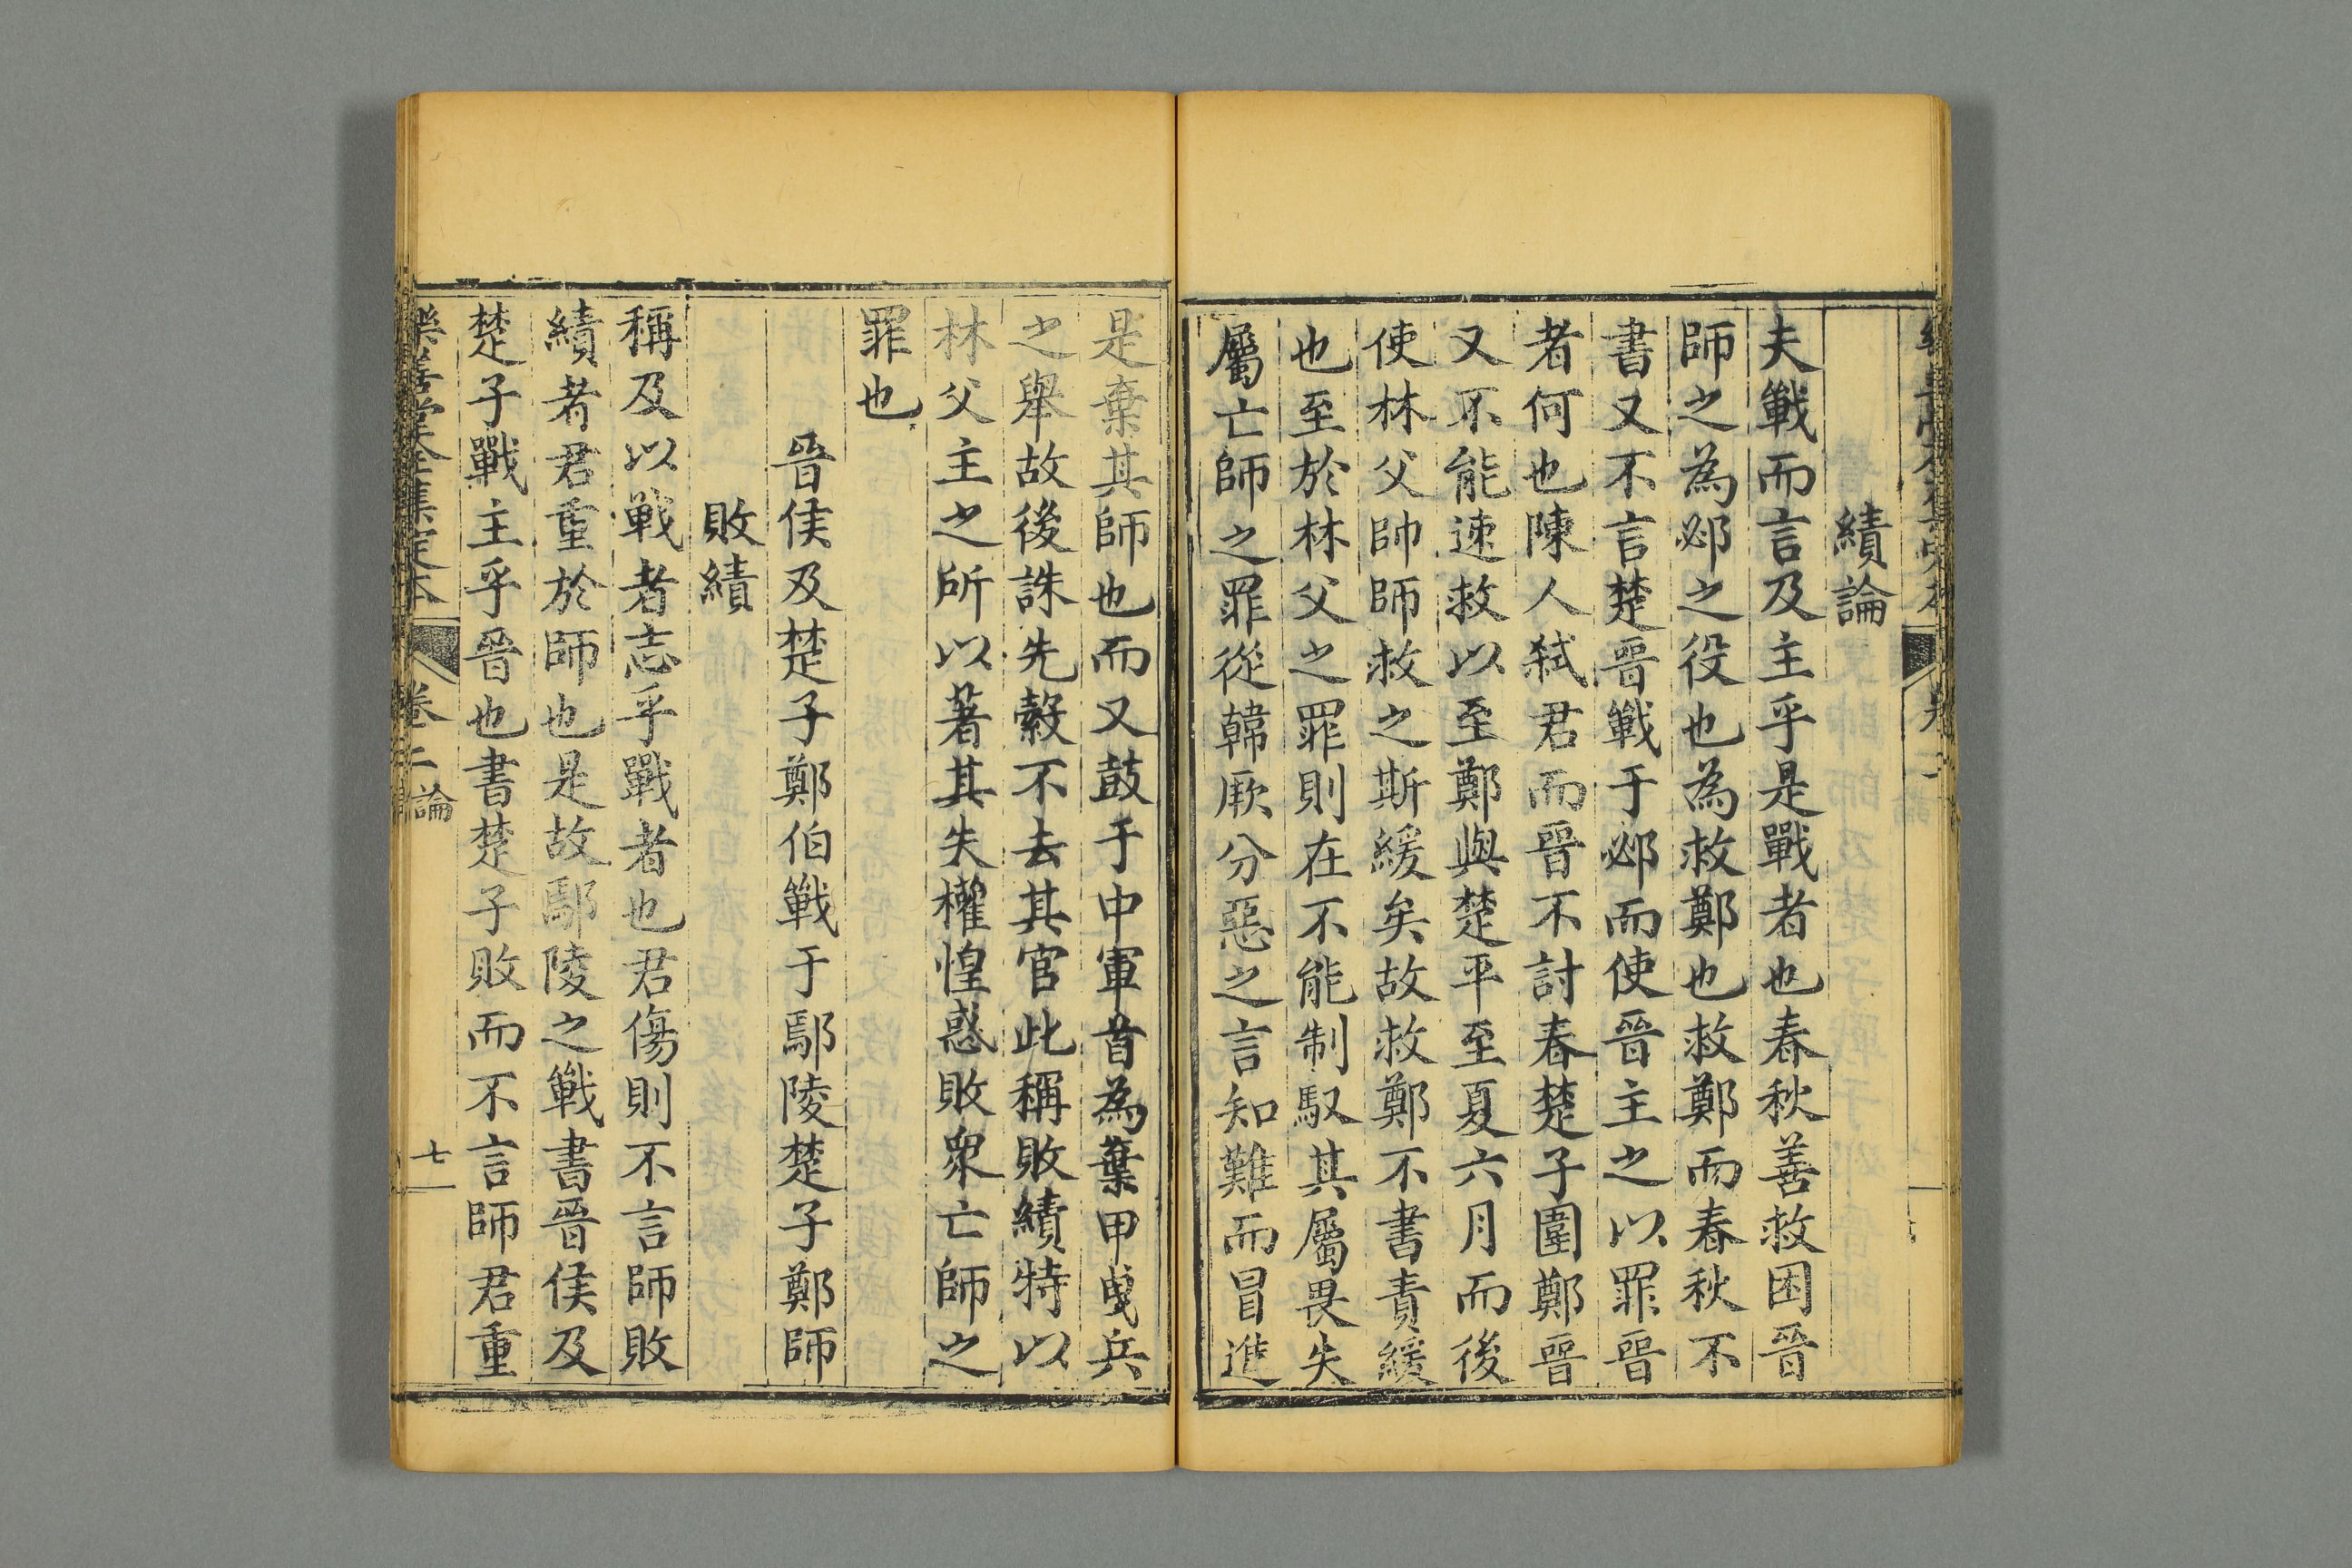 績論
夫戰而言及主乎是戰者也春秋善救困晉
師之為邲之役也為救鄭也救鄭而春秋不
書又不言楚晉戰于邲而使晉主之以罪晉
者何也陳人弑君而晉不討春楚子圍鄭晉
又不能速救以至鄭與楚平至夏六月而後
使林父帥師救之斯緩矣故救鄭不書責緩
也至於林父之罪則在不能制馭其屬畏失
屬亡師之罪從韓厥分惡之言知難而冒進
是棄其師也而又鼓于中軍首為棄甲曳兵
之舉故後誅先縠不去其官此稱敗績特以
林父主之所以著其失權惶惑敗衆亡師之
罪也
晉侯及楚子鄭伯戰于鄢陵楚子鄭師
敗績
稱及以戰者志乎戰者也君傷則不言師敗
績者君重於師也是故鄢陵之戰書晉侯及
楚子戰主乎晉也書楚子敗而不言師君重
樂善堂全集定本 卷二 論 七